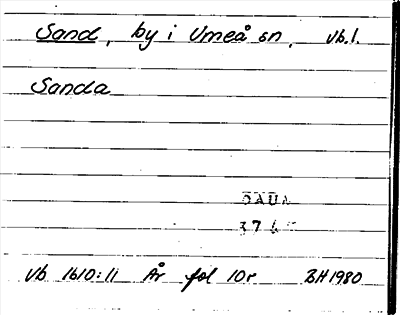 Sand, by i Umeå sn, Vb.l.
Sanda
DAUM
Vb 1610:11 År fol 10r BH 1980